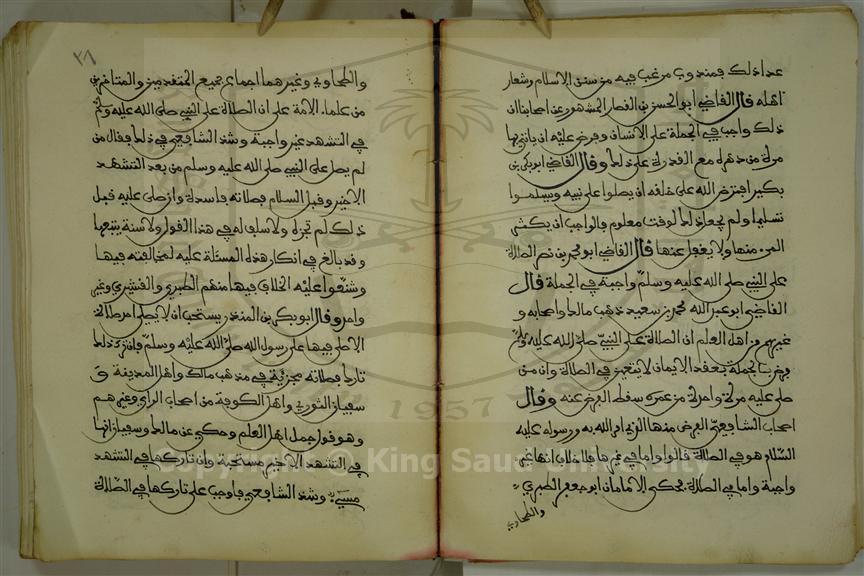 عدا ذلك فمندوب مرغب فيه من سنن الاسلام وشعار
اهله قال القاضي ابو الحسن بن القصار المشهور عن اصحابنا ان
ذلك واجب في الجملة على الانسان وفرض عليه ان ياتي بها
مرة من دهره مع القدرة على ذلك وقال القاضي ابو بكر بن
بكير افترض الله على خلقه ان يصلوا على نبيه ويسلموا
تسليما ولم يجعل ذلك لوقت معلوم فالواجب ان يكثر
المرء منها ولا يغفل عنها قال القاضي ابو محمد بن نصر الصلاة
على النبي صلى الله عليه وسلم واجبة في الجملة قال
القاضي ابو عبد الله محمد بن سعيد ذهب مالك واصحابه و
غيرهم من اهل العلم ان الصلاة على النبي صلى الله عليه وسلم
فرض بالجملة بعقد الايمان لا يتعين في الصلاة وان من
صلى عليه مرة واحدة من عمره سقط الفرض عنه وقال
اصحاب الشافعي الفرض منها الذي امر الله به ورسوله عليه
السلام هو في الصلاة قالوا واما في غيرها فلا خلاف انها غير
واجبة واما في الصلاة فحكى الامامان ابو جعفر الطبري
والطحاوي
٣٨
والطحاوي وغيرهما اجماع جميع المتقدمين والمتاخرين
من علماء الامة على ان الصلاة على النبي صلى الله عليه وسلم
في التشهد غير واجبة وشذ الشافعي في ذلك فقال من
لم يصل على النبي صلى الله عليه وسلم من بعد التشهد
الاخير وقبل السلام فصلاته فاسدة وان صلى عليه قبل
ذلك لم تجزه ولا سلف له في هذا القول ولا سنة يتبعها
وقد بالغ في انكار هذه المسئلة عليه لمخالفته فيها
وشنعوا عليه الخلاف فيها منهم الطبري والقشيري وغير
واحد وقال ابو بكر بن المنذر يستحب ان لا يصلي احد صلاة
الا صلى فيها على رسول الله صلى الله عليه وسلم فان ترك ذلك
تارك فصلاته مجزئة في مذهب مالك واهل المدينة و
سفيان الثوري واهل الكوفة من اصحاب الراي وغيرهم
وهو قول جمل اهل العلم وحكي عن مالك وسفيان انها
في التشهد الاخير مستحبة وان تاركها في التشهد
مسيء وشذ الشافعي فاوجب على تاركها في الصلاة
Copyright © King Saud University
1957